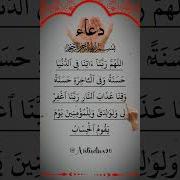 دعاء
بسم الله الرحمن الرحيم
اللهم ربنا ءاتنا في الدنيا
حسنة وفي الآخرة حسنة
وقنا عذاب النار ربنا اغفر
لي ولوالدي وللمؤمنين يوم
يقوم الحساب